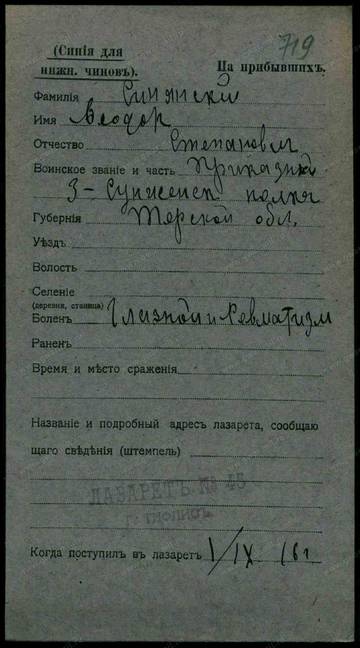 719
(Синія для
нижн. чиновъ).
На прибывшихъ.
Фамилія Синянскій
Имя Ѳеодор
Отчество Степанович
Воинское званіе и часть Приказный
3-Сунженск полка
Губернія Терской обл.
Уѣздъ
Волость
Селеніе
(деревня, станица)
Боленъ Глазной и Ревматизм
Раненъ
Время и мѣсто сраженія
Названіе и подробный адресъ лазарета, сообщаю
щаго свѣдѣнія (штемпель)
ЛАЗАРЕТЪ № 45
Г. ТИФЛИСЪ
Когда поступилъ въ лазаретъ 1/IX 16 г